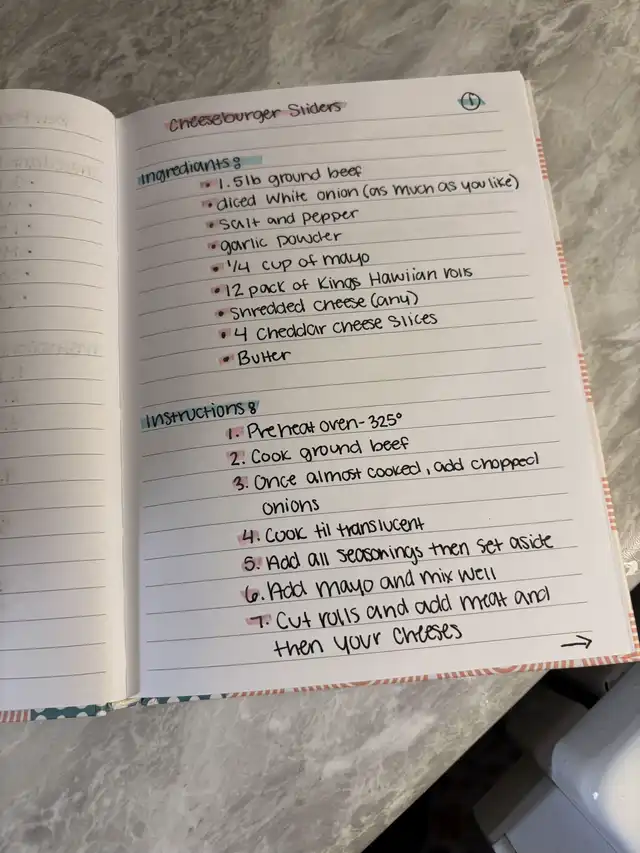 Cheeseburger Sliders
1
Ingrediants:
• 1.5lb ground beef
• diced white onion (as much as you like)
• Salt and pepper
• garlic powder
• 1/4 cup of mayo
• 12 pack of Kings Hawiian rolls
• Shredded cheese (any)
• 4 Cheddar cheese slices
• Butter
Instructions:
1. Preheat oven - 325°
2. Cook ground beef
3. Once almost cooked, add chopped
onions
4. Cook til translucent
5. Add all seasonings then set aside
6. Add mayo and mix well
7. Cut rolls and add meat and
then your cheeses
→